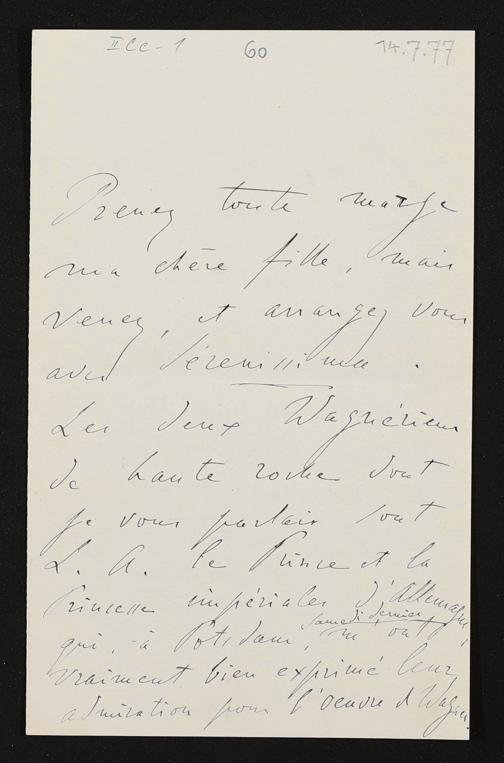 II Cc - 1 60 14.7.77
Prenez toute marge
ma chère fille, mais
venez, et arrangez vous
avec Sérénissime.
Les deux Wagnériens
de haute roche dont
je vous parlais sont
L. A. le Prince et la
Princesse impériales d'Allemagne,
qui, à Potsdam, samedi dernier, m'ont
vraiment bien exprimé leur
admiration pour l'oeuvre d Wagner.